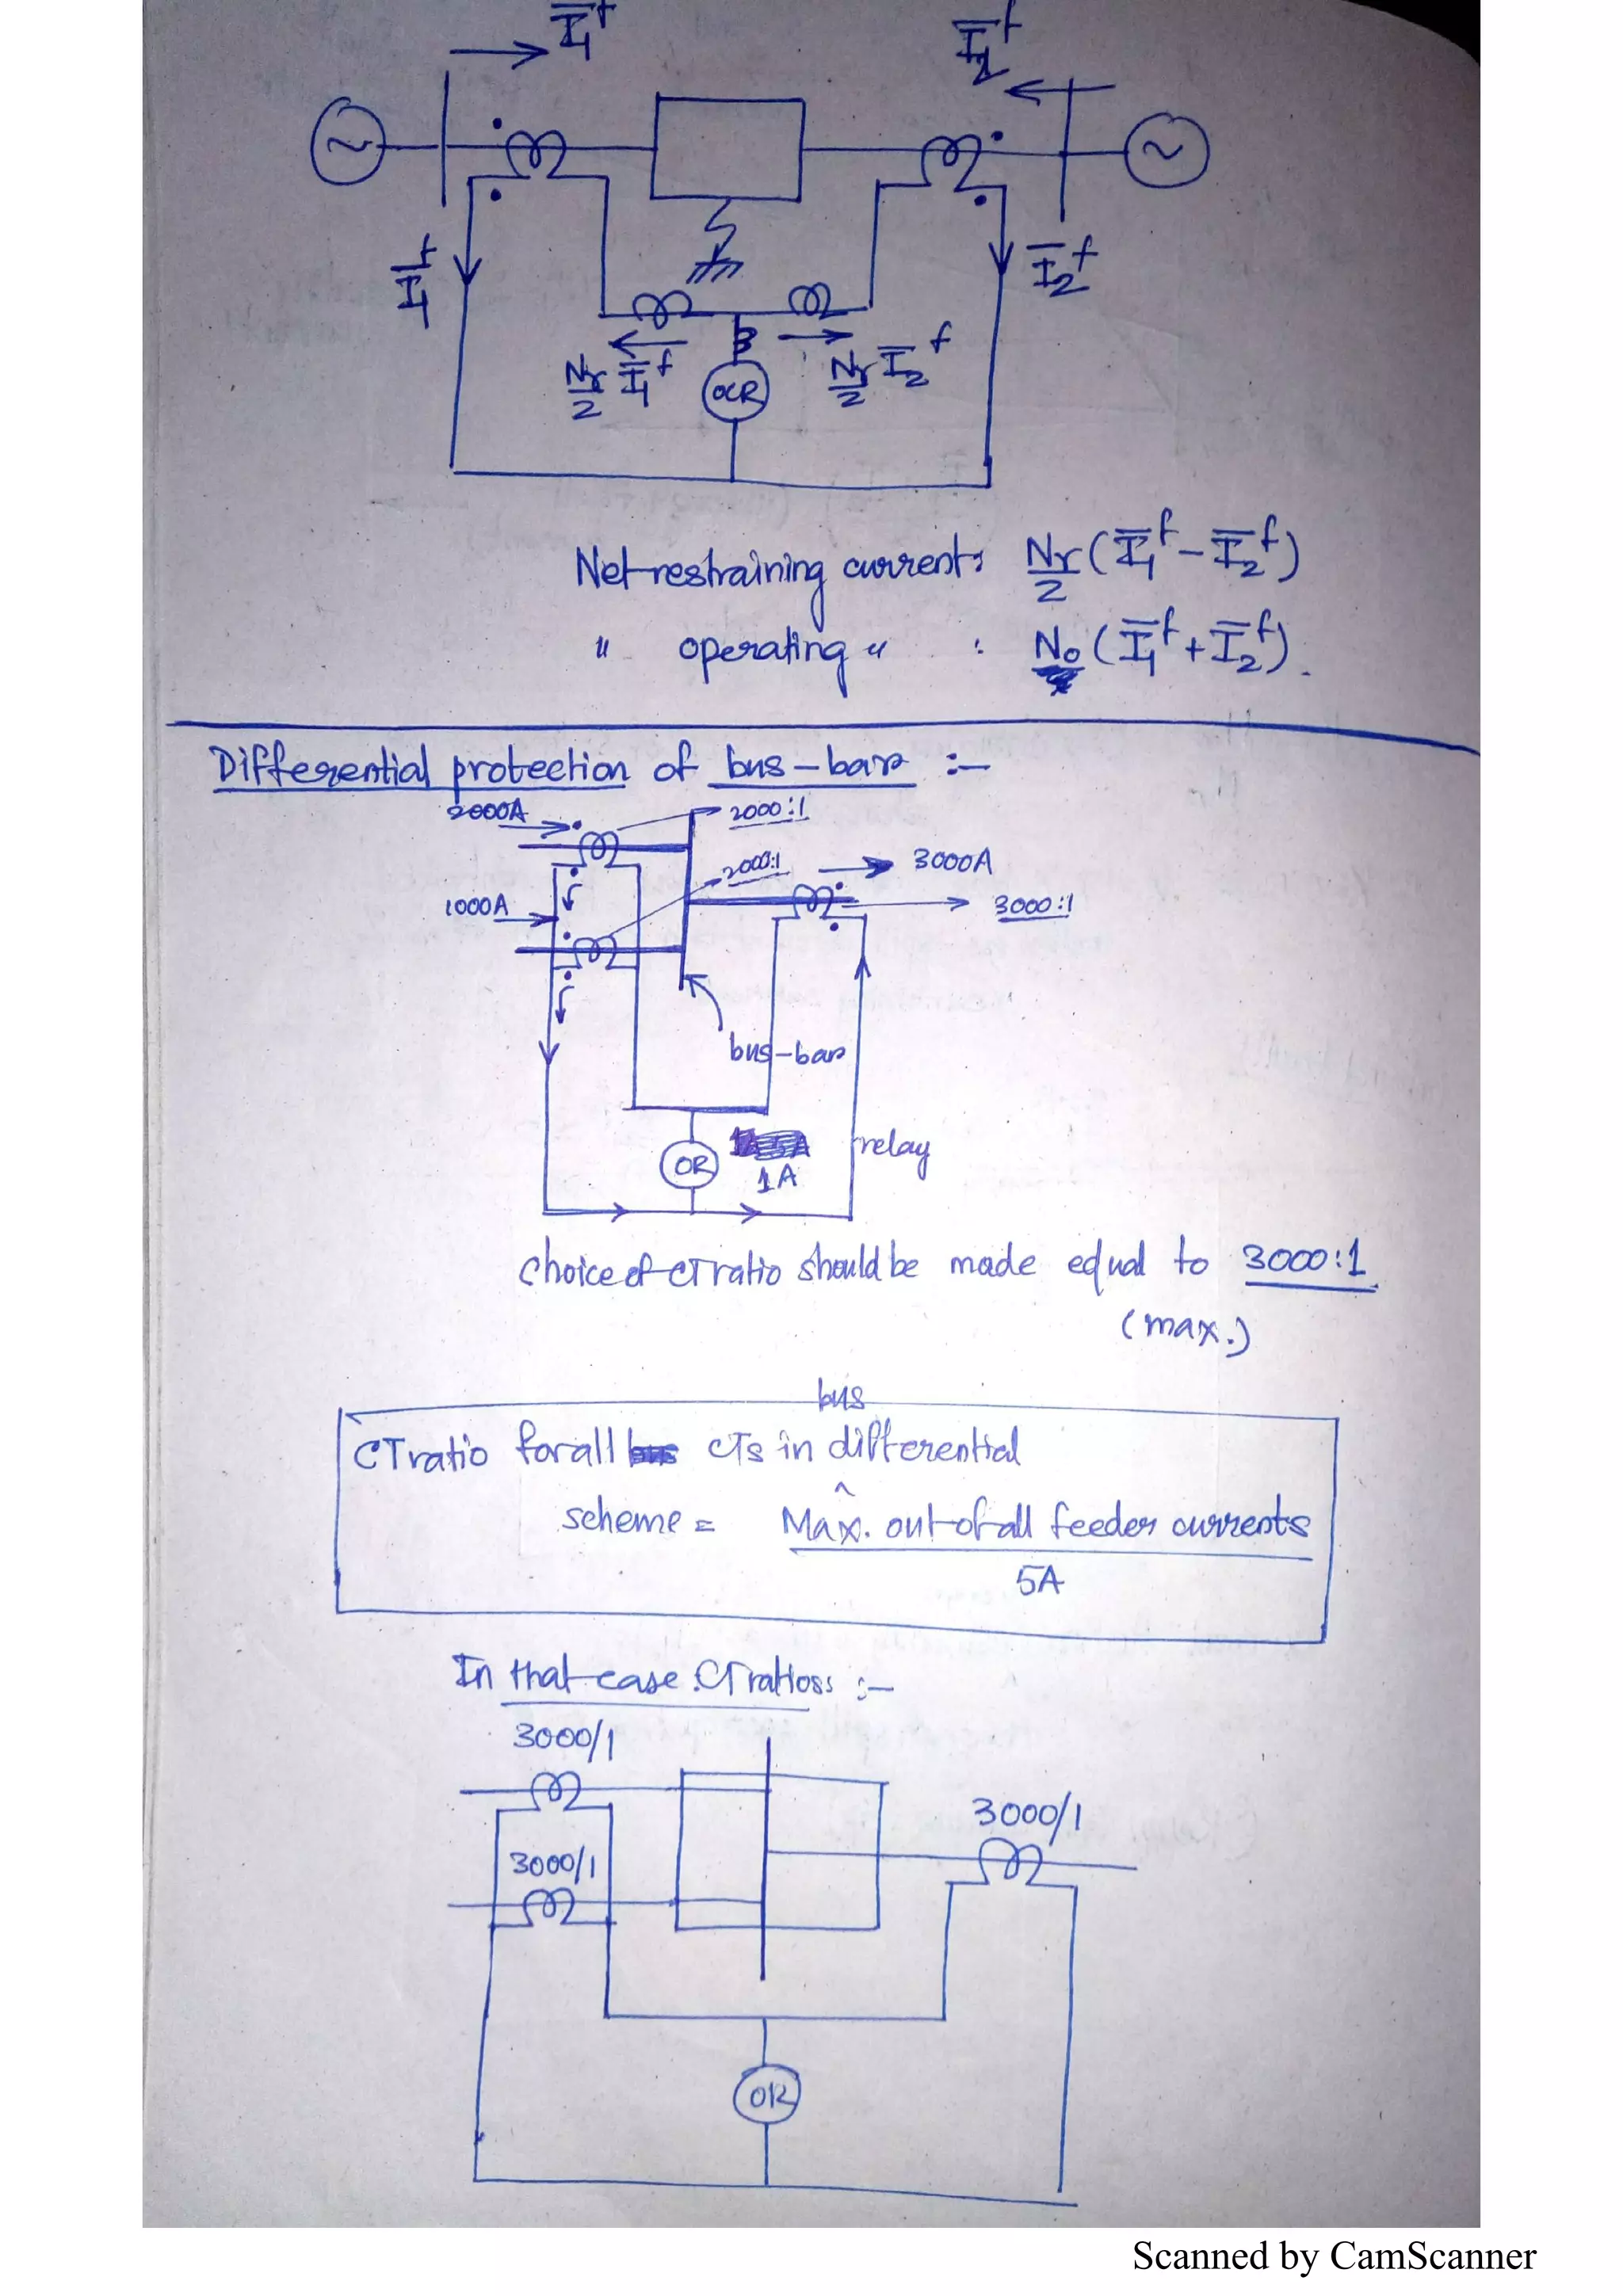 I̅₁ᶠ
I̅₂ᶠ
I̅₁ᶠ
I̅₂ᶠ
Nr/2 I̅₁ᶠ
OCR
Nr/2 I̅₂ᶠ
Net restraining current: Nr/2 (I̅₁ᶠ - I̅₂ᶠ)
" operating " : No (I̅₁ᶠ + I̅₂ᶠ).
Differential protection of bus-bar :-
2000A
2000:1
2000:1
3000A
1000A
3000:1
bus-bar
OR
1A
relay
Choice of CT ratio should be made equal to 3000:1.
(max.)
bus
CT ratio for all CTs in ^ differential
scheme = Max. out of all feeder currents
5A
In that case CT ratios :-
3000/1
3000/1
3000/1
OR
Scanned by CamScanner